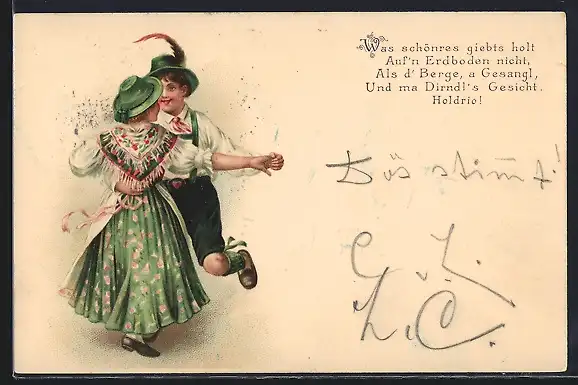 Was schönres giebts holt
Auf'n Erdboden nicht,
Als d' Berge, a Gesangl,
Und ma Dirndl's Gesicht.
Holdrio!
Dös stimmt!